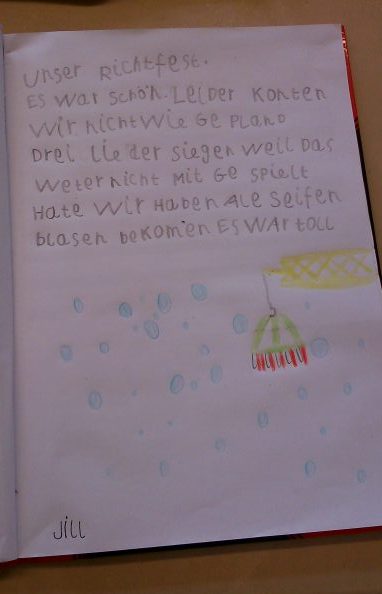 Unser Richtfest.
Es war schön. Leider konten
wir nicht wie ge pland
Drei lie der siegen weil das
weter nicht mit ge spielt
Hate wir haben ale seifen
blasen bekomen Es war toll
Jill